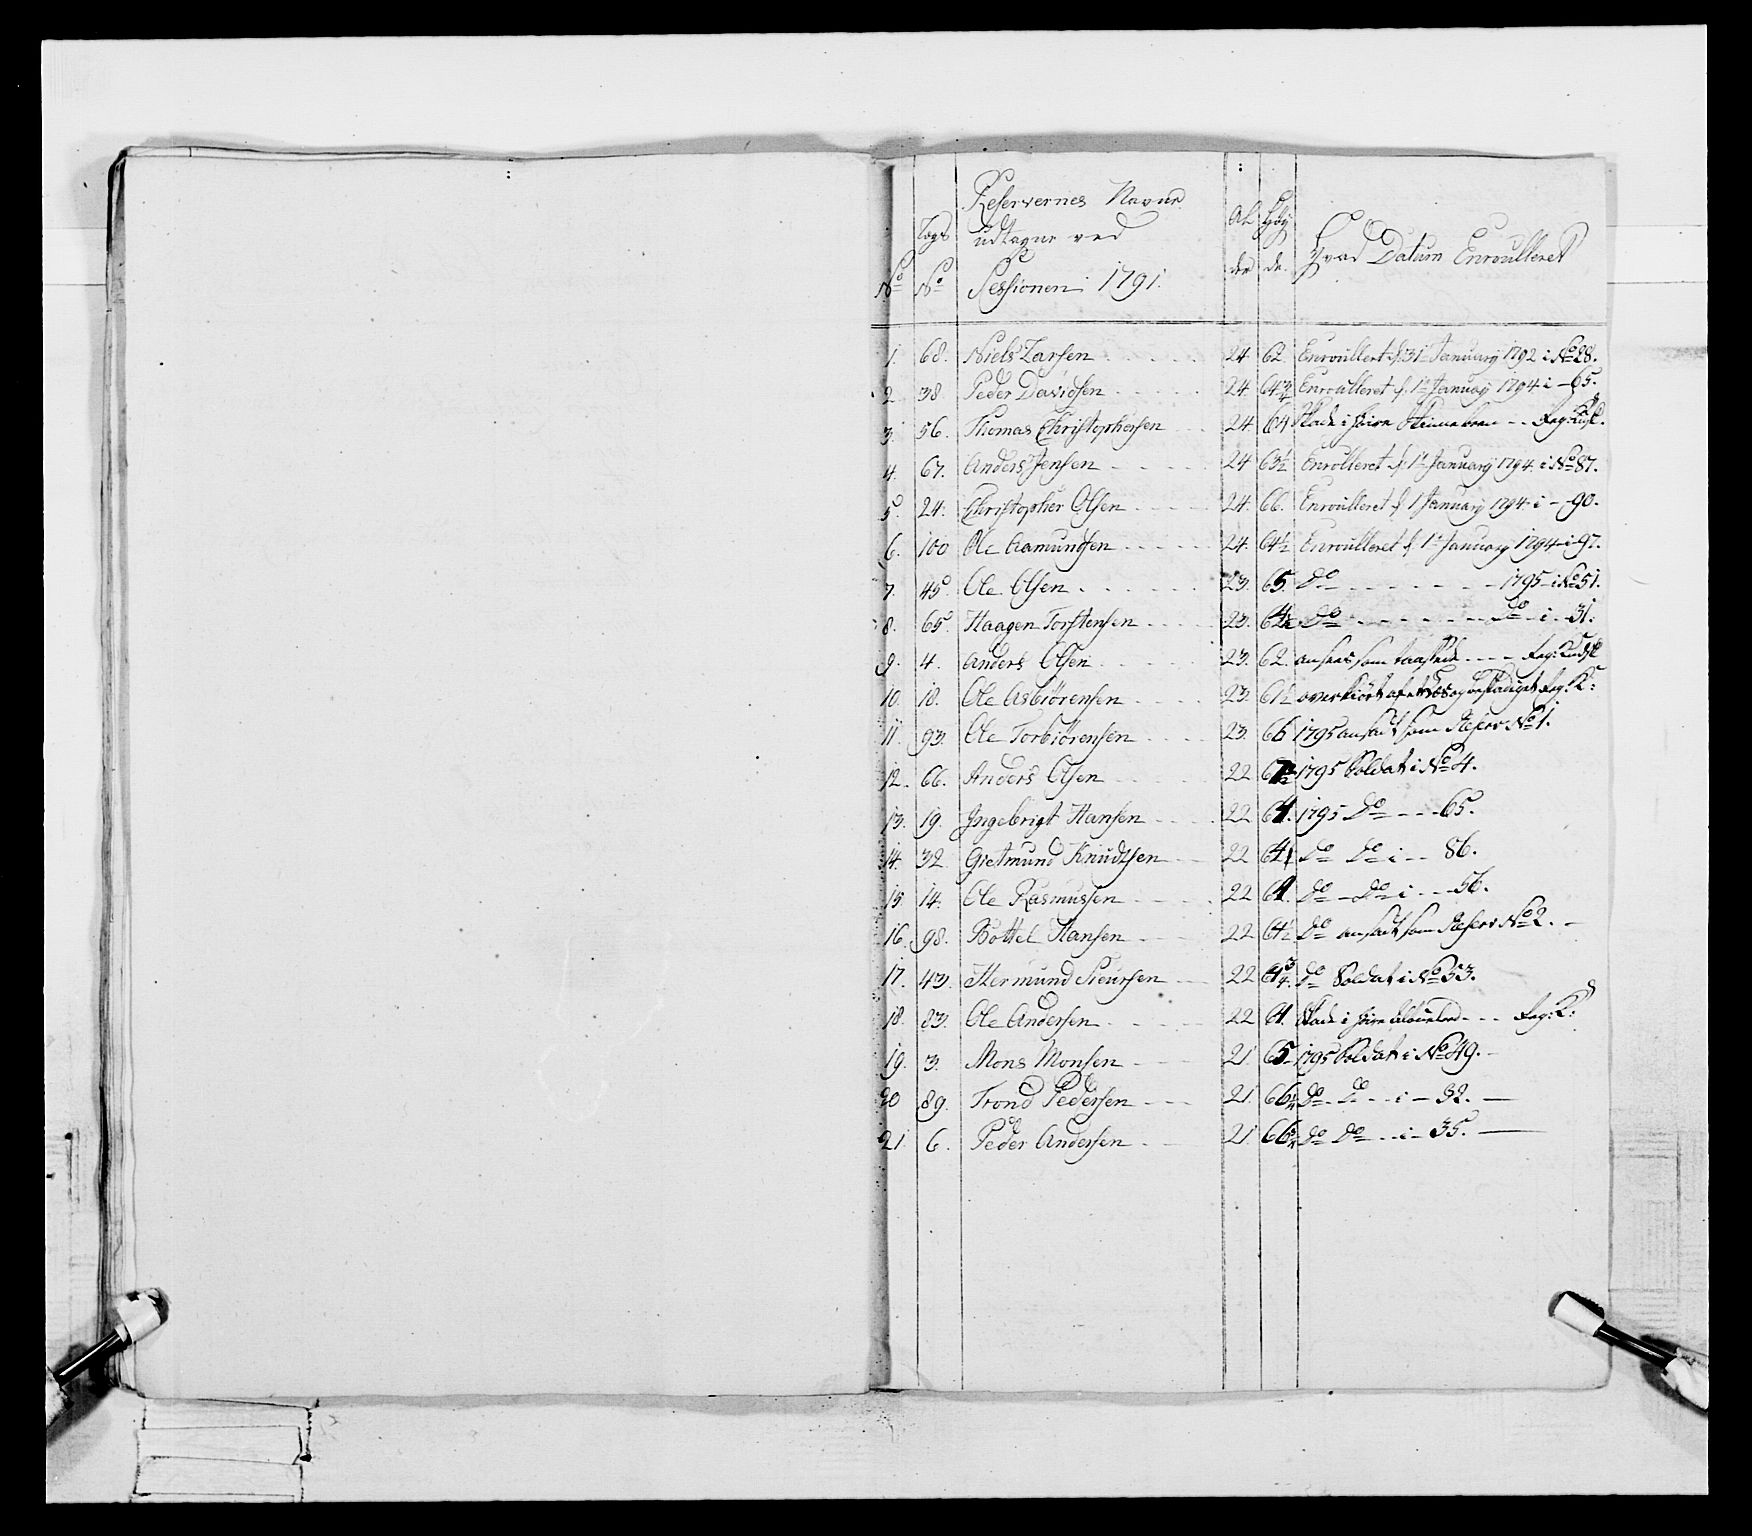 Reservernes Navne
udtagne ved
Sessionen i 1791.
No
Lægs No
Al der
Høy de.
Hvad Datum Enroulleret
1. 68. Niels Larsen 24 62 Enroullert d: 31te January 1792 i No 28.
2. 38 Peder Davidsen 24. 64 3/4 Enroulleret d. 1te January 1794 i - 65.
3. 56. Thomas Christophersen 24. 64 Skade i høire
4. 67. Anders Jensen 24 63½ Enrolleret d. 1te January 1794 i No 87.
5. 24. Christopher Olsen 24. 66. Enroulleret d. 1 January 1794 i - 90.
6. 100 Ole Aamundsen 24. 64½ Enroulleret d. 1te January 1794 i 97.
7. 45. Ole Olsen 23. 65 Do 1795 i No 51.
8. 65. Haagen Torstensen 23. Do Do i - 31.
9. 4. Anders Olsen 23. 62. ansees som
10. 18. Ole Asbiörensen 23. 61½ overkiört af et
11. 93. Ole Torbiörensen 23. 66 1795 ansadt som Reserv No 1.
12. 66. Anders Olsen 22 1795 Soldat i No 4.
13. 19. Ingebrigt Hansen 22 64. 1795 Do 65.
14. 32 Gietmund Knudtsen 22 Do Do i 86.
15 14. Ole Rasmussen 22 64. Do Do i 56.
16. 98. Bottel Hansen 22 64½ Do ansadt som Reserv No 2.
17. 43. Hermund Sieursen 22 Do Soldat i No 53.
18. 83. Ole Andersen 22 Skade i høire Reg: K:
19. 3. Mons Monsen 21. 65 1795 Soldat i No 49.
20 89. Trond Pedersen 21. Do Do i 32.
21 6. Peder Andersen 21 Do Do i 35.